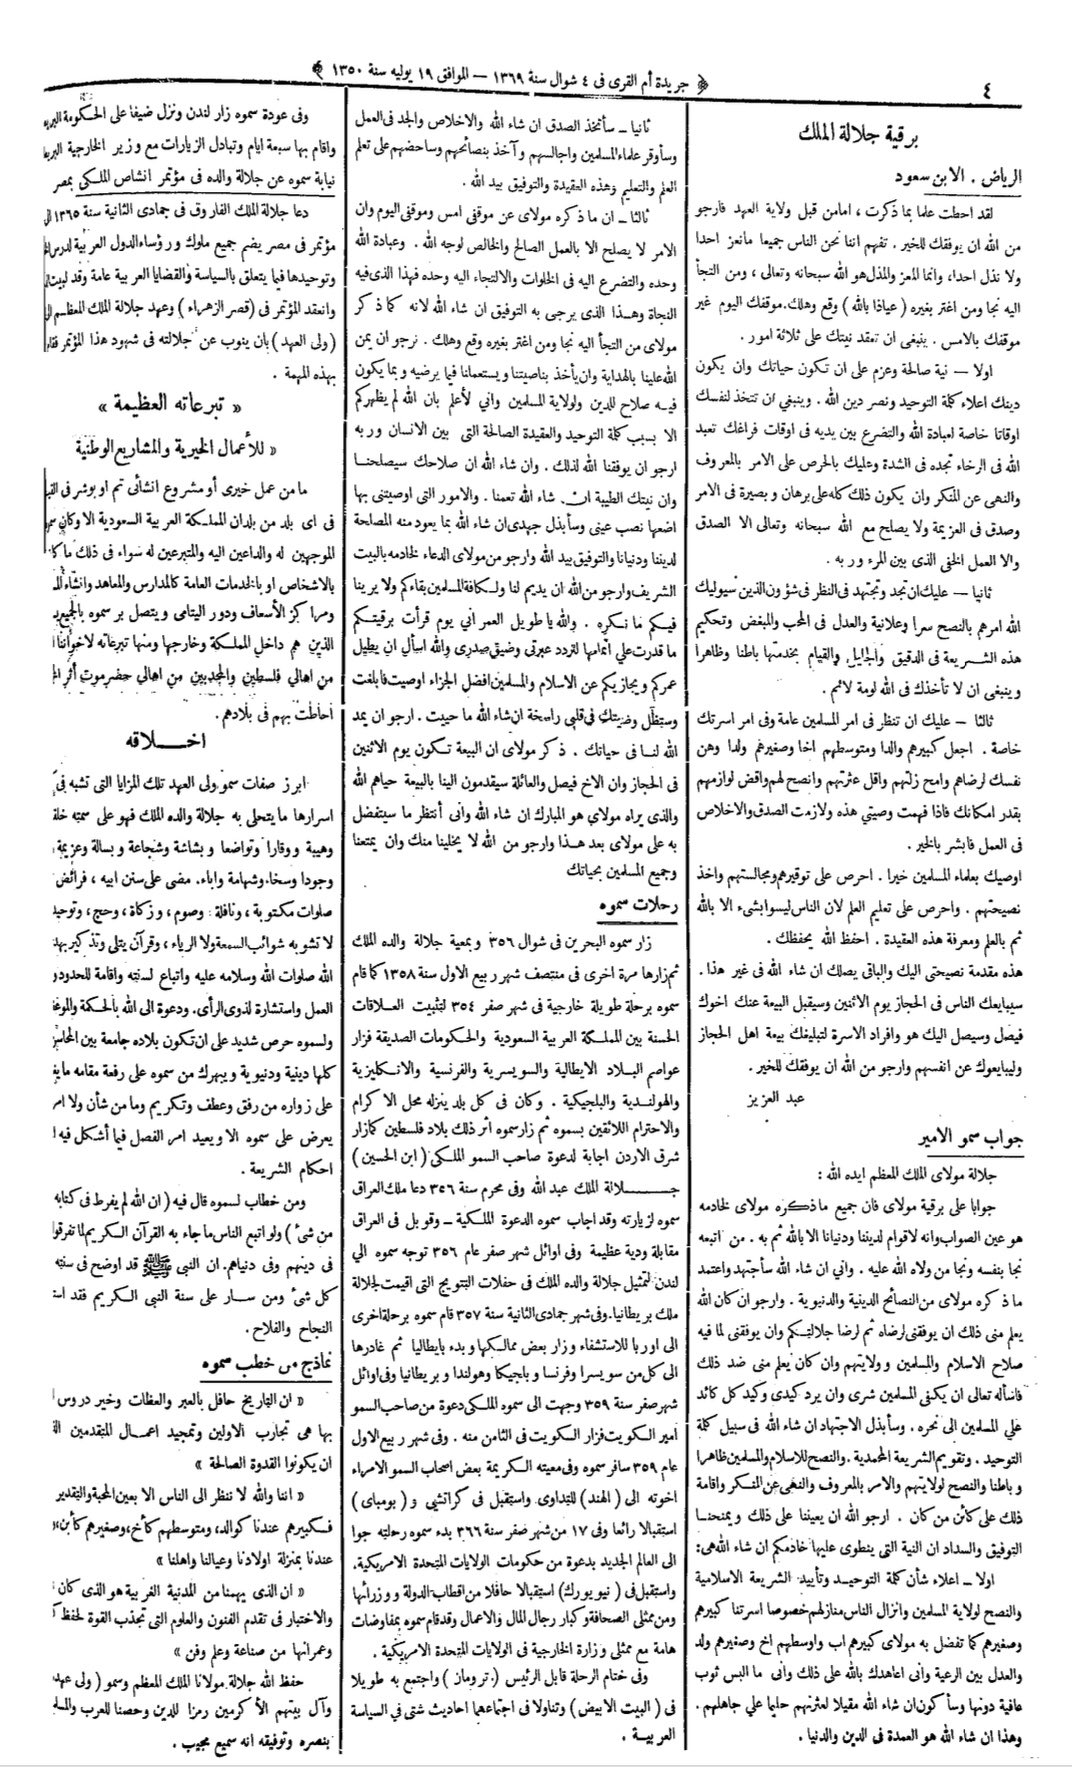 ٤
﴿ جريدة أم القرى فى ٤ شوال سنة ١٣٦٩ — الموافق ١٩ يوليه سنة ١٣٥٠ ﴾
برقية جلالة الملك
الرياض . الابن سعود
لقد احطت علما بما ذكرت ، امامن قبل ولاية العهد فارجو
من الله ان يوفقك للخير . تفهم اننا نحن الناس جميعا مانعز احدا
ولا نذل احدا، وانما المعز والمذل هو الله سبحانه وتعالى ، ومن التجأ
اليه نجا ومن اغتر بغيره ( عياذا بالله ) وقع وهلك. موقفك اليوم غير
موقفك بالامس . ينبغى ان تعقد نيتك على ثلاثة امور .
اولا — نية صالحة وعزم على ان تكون حياتك وان يكون
دينك اعلاء كلمة التوحيد ونصر دين الله . وينبغي ان تتخذ لنفسك
اوقاتا خاصة لعبادة الله والتضرع بين يديه فى اوقات فراغك تعبد
الله فى الرخاء تجده فى الشدة وعليك بالحرص على الامر بالمعروف
والنهى عن المنكر وان يكون ذلك كله على برهان وبصيرة فى الامر
وصدق فى العزيمة ولا يصلح مع الله سبحانه وتعالى الا الصدق
والا العمل الخفى الذى بين المرء وربه .
ثانيا — عليك ان تجد وتجتهد فى النظر فى شؤون الذين سيوليك
الله امرهم بالنصح سرا وعلانية والعدل فى المحب والمبغض وتحكيم
هذه الشريعة فى الدقيق والجليل والقيام بخدمتها باطنا وظاهرا
وينبغى ان لا تأخذك فى الله لومة لائم .
ثالثا — عليك ان تنظر فى امر المسلمين عامة وفى امر اسرتك
خاصة . اجعل كبيرهم والدا ومتوسطهم اخا وصغيرهم ولدا وهن
نفسك لرضاهم وامح زلتهم واقل عثرتهم وانصح لهم واقض لوازمهم
بقدر امكانك فاذا فهمت وصيتي هذه ولازمت الصدق والاخلاص
فى العمل فابشر بالخير .
اوصيك بعلماء المسلمين خيرا . احرص على توقيرهم ومجالستهم واخذ
نصيحتهم . واحرص على تعليم العلم لان الناس ليسوا بشىء الا بالله
ثم بالعلم ومعرفة هذه العقيدة . احفظ الله يحفظك .
هذه مقدمة نصيحتى اليك والباقى يصلك ان شاء الله فى غير هذا .
سيبايعك الناس فى الحجاز يوم الاثنين وسيقبل البيعة عنك اخوك
فيصل وسيصل اليك هو وافراد الاسرة لتبليغك بيعة اهل الحجاز
وليبايعوك عن انفسهم وارجو من الله ان يوفقك للخير .
عبد العزيز
جواب سمو الامير
جلالة مولاى الملك المعظم ايده الله :
جوابا على برقية مولاى فان جميع ماذكره مولاى لخادمه
هو عين الصواب وانه لاقوام لديننا ودنيانا الا بالله ثم به . من اتبعه
نجا بنفسه ونجا من ولاه الله عليه . واني ان شاء الله سأجتهد واعتمد
ما ذكره مولاى من النصائح الدينية والدنيوية . وارجو ان كان الله
يعلم منى ذلك ان يوفقنى لرضاه ثم لرضا جلالتكم وان يوفقنى لما فيه
صلاح الاسلام والمسلمين وولايتهم وان كان يعلم منى ضد ذلك
فاسأله تعالى ان يكفى المسلمين شرى وان يرد كيدى وكيد كل كائد
علي المسلمين الى نحره . وسأبذل الاجتهاد ان شاء الله فى سبيل كلمة
التوحيد . وتقويم الشريعة المحمدية . والنصح للاسلام والمسلمين ظاهرا
وباطنا والنصح لولايتهم والامر بالمعروف والنهى عن المنكر واقامة
ذلك على كائن من كان . ارجو الله ان يعيننا على ذلك ويمنحنا
التوفيق والسداد ان النية التى ينطوى عليها خادمكم ان شاء الله هى:
اولا — اعلاء شأن كلمة التوحيد وتأييد الشريعة الاسلامية
والنصح لولاية المسلمين وانزال الناس منازلهم خصوصا اسرتنا كبيرهم
وصغيرهم كما تفضل به مولاى كبيرهم اب واوسطهم اخ وصغيرهم ولد
والعدل بين الرعية وانى اعاهدك بالله على ذلك وانى ما البس ثوب
عافية دونها وسأكون ان شاء الله مقيلا لعثرتهم حليما علي جاهلهم .
وهذا ان شاء الله هو العمدة فى الدين والدنيا .
ثانيا — سأتخذ الصدق ان شاء الله والاخلاص والجد فى العمل
وسأوقر علماء المسلمين واجالسهم وآخذ بنصائحهم وساحضهم على تعلم
العلم والتعليم وهذه العقيدة والتوفيق بيد الله .
ثالثا — ان ما ذكره مولاى عن موقفى امس وموقفى اليوم وان
الامر لا يصلح الا بالعمل الصالح والخالص لوجه الله . وعبادة الله
وحده والتضرع اليه فى الخلوات والالتجاء اليه وحده فهذا الذى فيه
النجاة وهذا الذى يرجى به التوفيق ان شاء الله لانه كما ذكر
مولاى من التجأ اليه نجا ومن اغتر بغيره وقع وهلك . نرجو ان يمن
الله علينا بالهداية وان يأخذ بناصيتنا ويستعملنا فيما يرضيه وبما يكون
فيه صلاح للدين ولولاية المسلمين واني لأعلم بان الله لم يظهركم
الا بسبب كلمة التوحيد والعقيدة الصالحة التى بين الانسان وربه
ارجو ان يوفقنا الله لذلك . وان شاء الله ان صلاحك سيصلحنا
وان نيتك الطيبة ان شاء الله تعمنا . والامور التى اوصيتنى بها
اضعها نصب عينى وسأبذل جهدى ان شاء الله بما يعود منه المصلحة
لديننا ودنيانا والتوفيق بيد الله وارجو من مولاى الدعاء لخادمه بالبيت
الشريف وارجو من الله ان يديم لنا ولكافة المسلمين بقاءكم ولا يرينا
فيكم ما نكره . والله يا طويل العمر اني يوم قرأت برقيتكم
ما قدرت علي اتمامها لتردد عبرتى وضيق صدرى والله اسأل ان يطيل
عمركم ويجازيكم عن الاسلام والمسلمين افضل الجزاء اوصيت فابلغت
وستظل وصيتك فى قلبى راسخة ان شاء الله ما حييت . ارجو ان يمد
الله لنا فى حياتك . ذكر مولاى ان البيعة تكون يوم الاثنين
فى الحجاز وان الاخ فيصل والعائلة سيقدمون الينا بالبيعة حياهم الله
والذى يراه مولاي هو المبارك ان شاء الله وانى أنتظر ما سيتفضل
به على مولاى بعد هذا وارجو من الله لا يخلينا منك وان يمتعنا
وجميع المسلمين بحياتك
رحلات سموه
زار سموه البحرين فى شوال ٣٥٦ وبمعية جلالة والده الملك
ثم زارها مرة اخرى فى منتصف شهر ربيع الاول سنة ١٣٥٨ كما قام
سموه برحلة طويلة خارجية فى شهر صفر ٣٥٤ لتثبيت العلاقات
الحسنة بين المملكة العربية السعودية والحكومات الصديقة فزار
عواصم البلاد الايطالية والسويسرية والفرنسية والانكليزية
والهولندية والبلجيكية . وكان فى كل بلد ينزله محل الاكرام
والاحترام اللائقين بسموه ثم زار سموه اثر ذلك بلاد فلسطين كما زار
شرق الاردن اجابة لدعوة صاحب السمو الملكى ( ابن الحسين )
جلالة الملك عبد الله وفى محرم سنة ٣٥٦ دعا ملك العراق
سموه لزيارته وقد اجاب سموه الدعوة الملكية — وقوبل فى العراق
مقابلة ودية عظيمة وفى اوائل شهر صفر عام ٣٥٦ توجه سموه الي
لندن لتمثيل جلالة والده الملك فى حفلات التتويج التى اقيمت لجلالة
ملك بريطانيا. وفى شهر جمادى الثانية سنة ٣٥٧ قام سموه برحلة اخرى
الى اوربا للاستشفاء وزار بعض ممالكها وبدء بايطاليا ثم غادرها
الى كل من سويسرا وفرنسا وبلجيكا وهولندا وبريطانيا وفى اوائل
شهر صفر سنة ٣٥٩ وجهت الى سموه الملكى دعوة من صاحب السمو
أمير الكويت فزار الكويت فى الثامن منه . وفى شهر ربيع الاول
عام ٣٥٩ سافر سموه وفى معيته الكريمة بعض اصحاب السمو الامراء
اخوته الى ( الهند ) للتداوى واستقبل فى كراتشي و ( بومباى )
استقبالا رائعا وفى ١٧ من شهر صفر سنة ٣٦٦ بدء سموه رحلته جوا
الى العالم الجديد بدعوة من حكومات الولايات المتحدة الامريكية.
واستقبل فى ( نيويورك ) استقبالا حافلا من اقطاب الدولة ووزرائها
ومن ممثلى الصحافة وكبار رجال المال والاعمال وقد قام سموه بمفاوضات
هامة مع ممثلى وزارة الخارجية فى الولايات المتحدة الامريكية .
وفى ختام الرحلة قابل الرئيس ( ترومان ) واجتمع به طويلا
فى ( البيت الابيض ) وتناولا فى اجتماعهما احاديث شتى في السياسة
العربية .
وفى عودة سموه زار لندن ونزل ضيفا على الحكومة
واقام بها سبعة ايام وتبادل الزيارات مع وزير الخارجية
نيابة سموه عن جلالة والده فى مؤتمر انشاص الملكى بمصر
دعا جلالة الملك الفاروق فى جمادى الثانية سنة ١٣٦٥
مؤتمر فى مصر يضم جميع ملوك ورؤساء الدول العربية
وتوحيدها فيما يتعلق بالسياسة والقضايا العربية عامة وقد
وانعقد المؤتمر فى ( قصر الزهراء ) وعهد جلالة الملك المعظم
( ولى العهد ) بان ينوب عن جلالته فى شهود هذا المؤتمر
بهذه المهمة .
« تبرعاته العظيمة »
« للأعمال الخيرية والمشاريع الوطنية
ما من عمل خيرى أو مشروع انشائى تم او بوشر فى
فى اى بلد من بلدان المملكة العربية السعودية الا وكان
الموجهين له والداعين اليه والمتبرعين له سواء فى ذلك
بالاشخاص او بالخدمات العامة كالمدارس والمعاهد وانشاء
ومراكز الأسعاف ودور اليتامى ويتصل بر سموه
الذين هم داخل المملكة وخارجها ومنها تبرعاته لاخواننا
من اهالي فلسطين والمجدبين من اهالي حضرموت أثر
احاطت بهم فى بلادهم .
اخلاقه
ابرز صفات سمو ولى العهد تلك المزايا التى تشبه فى
اسرارها ما يتحلى به جلالة والده الملك فهو على سمته
وهيبة ووقارا وتواضعا وبشاشة وشجاعة وبسالة وعزيمة
وجودا وسخاء وشهامة واباء. مضى على سنن ابيه ، فرائض
صلوات مكتوبة ، ونافلة وصوم ، وزكاة ، وحج ،
لا تشوبه شوائب السمعة ولا الرياء ، وقرآن يتلى وتذكير
الله صلوات الله وسلامه عليه واتباع لسنته واقامة للحدود
العمل واستشارة لذوى الرأى. ودعوة الى الله بالحكمة
ولسموه حرص شديد على ان تكون بلاده جامعة بين
كلها دينية ودنيوية ويبهرك من سموه على رفعة مقامه
على زواره من رفق وعطف وتكريم وما من شأن
يعرض على سموه الا ويعيد امر الفصل فيما أشكل فيه
احكام الشريعة .
ومن خطاب لسموه قال فيه ( ان الله لم يفرط فى كتابه
من شئ ) ولو اتبع الناس ما جاء به القرآن الكريم لما تفرقوا
فى دينهم وفى دنياهم. ان النبي ﷺ قد اوضح فى سنته
كل شئ ومن سار على سنة النبى الكريم فقد
النجاح والفلاح .
نماذج من خطب سموه
« ان التاريخ حافل بالعبر والعظات وخير دروس
بها هى تجارب الاولين وتمجيد اعمال المتقدمين
ان يكونوا القدوة الصالحة »
« اننا والله لا ننظر الى الناس الا بعين المحبة والتقدير
فكبيرهم عندنا كوالد، ومتوسطهم كأخ، وصغيرهم
عندنا بمنزلة اولادنا وعيالنا واهلنا »
« ان الذى يهمنا من المدنية الغربية هو الذى كان
والاختبار فى تقدم الفنون والعلوم التى تجذب القوة لحفظ
وعمرانها من صناعة وعلم وفن »
حفظ الله جلالة مولانا الملك المعظم وسمو ( ولى
وآل بيتهم الأكرمين رمزا للدين وحصنا للعرب
بنصره وتوفيقه انه سميع مجيب .